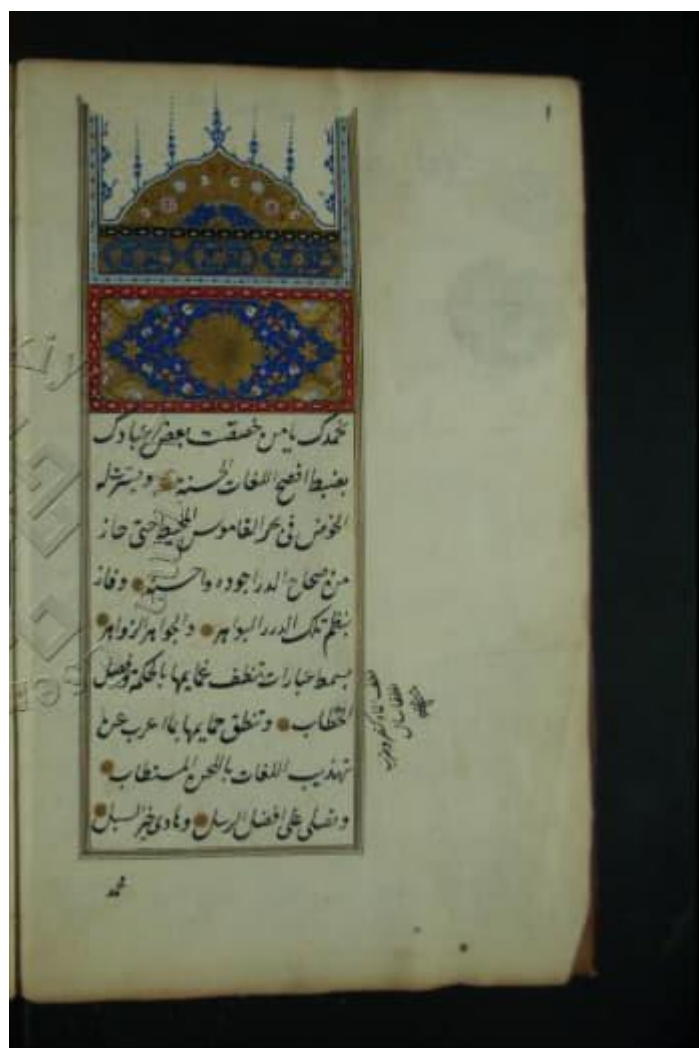 نحمدك يا من خصصت بعض عبادك
بضبط افصح اللغات الحسنة ويسرت له
الخوض فى بحر القاموس المحيط حتى حاز
من صحاح الدر اجوده واحسنه وفاز
بنظم تلك الدرر البواهر والجواهر الزواهر
بسمط عبارات تنطف غمايمها بالحكمة وفصل
الخطاب وتنطق حمايمها بما اعرب عن
تهذيب اللغات باللحن المستطاب
ونصلى على افضل الرسل وهادى خير السبل
محمد
١